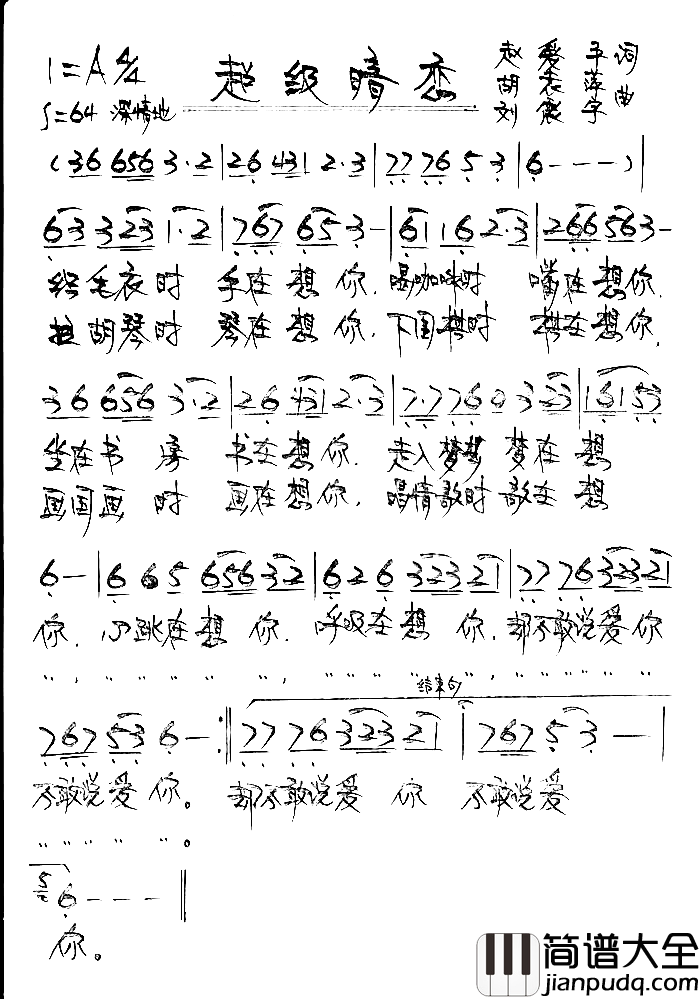 超级暗恋
1=A 4/4
♩=64 深情地
赵爱平 词
胡志萍
刘 宇 曲
(36 656 3·2|26 431 2·3|77 76 5 3|6 - - -)|
63 323 1·2|767 65 3 -|61 16 2·3|266 563 -
织毛衣时 手在想你, 喝咖啡时 嘴在想你,
拉胡琴时 琴在想你, 下围棋时 棋在想你,
36 656 3·2|26 431 2·3|7·7 76 0 323|1 61 53
坐在书房 书在想你, 走入梦梦在想
画国画时 画在想你, 唱情歌时歌在想
6 -|66 5 656 32|62 6 323 21|77 76 323 21
你, 心跳在想你, 呼吸在想你, 却不敢说爱你
结束句
767 53 6 - :‖77 76 323 21|767 5 3 -|
不敢说爱你。 却不敢说爱你 不敢说爱
6 - - -‖
你。
简谱大全
jianpudq.com